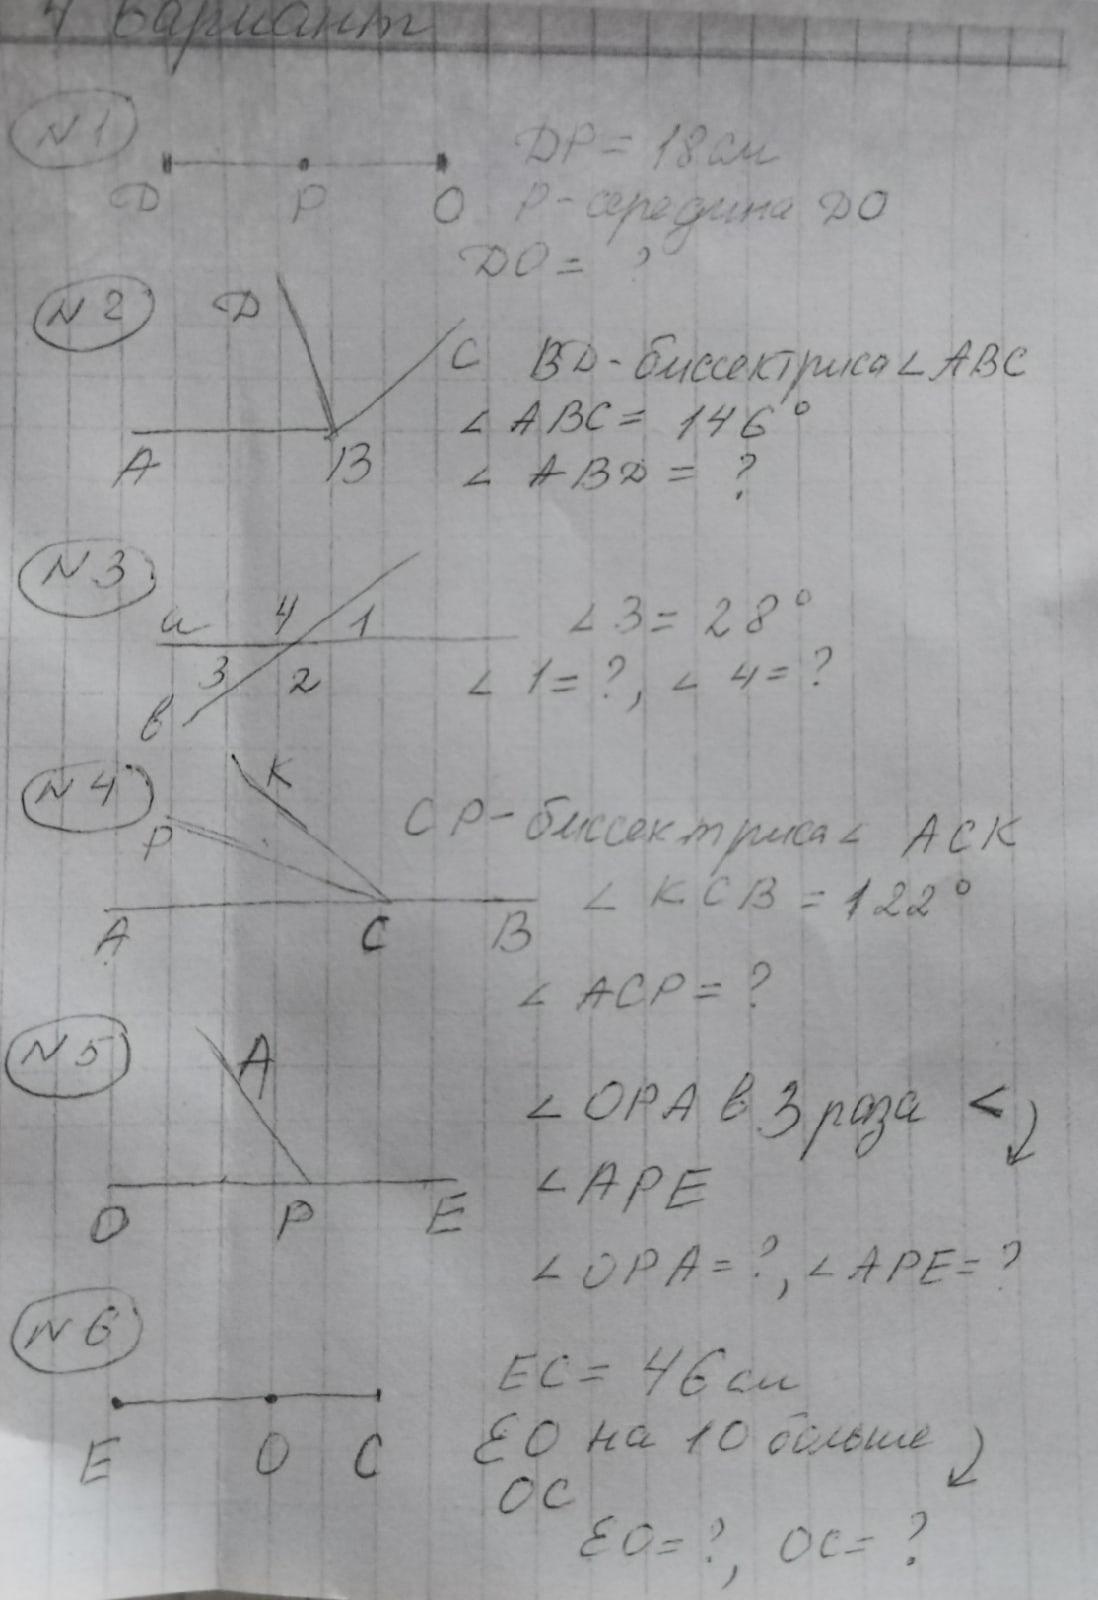 4 вариант
N 1
DP = 18 см
D P O P - середина DO
DO = ?
N 2
D
C BD - биссектриса ∠ ABC
∠ ABC = 146°
A B ∠ ABD = ?
N 3
a 4 1 ∠ 3 = 28°
3 2 ∠ 1 = ?, ∠ 4 = ?
b
N 4 K
P CP - биссектриса ∠ ACK
∠ KCB = 122°
A C B
∠ ACP = ?
N 5 A
∠ OPA в 3 раза <
∠ APE
O P E
∠ OPA = ?, ∠ APE = ?
N 6
EC = 46 см
E O C EO на 10 больше
OC
EO = ?, OC = ?